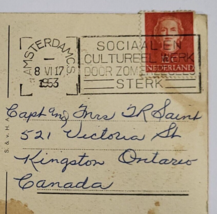 AMSTERDAM C.S.
8 VI 17
1953
SOCIAAL EN
CULTUREEL WERK
DOOR ZOMER
STERK
NEDERLAND
Capt & Mrs J R Saint
521 Victoria St
Kingston Ontario
Canada